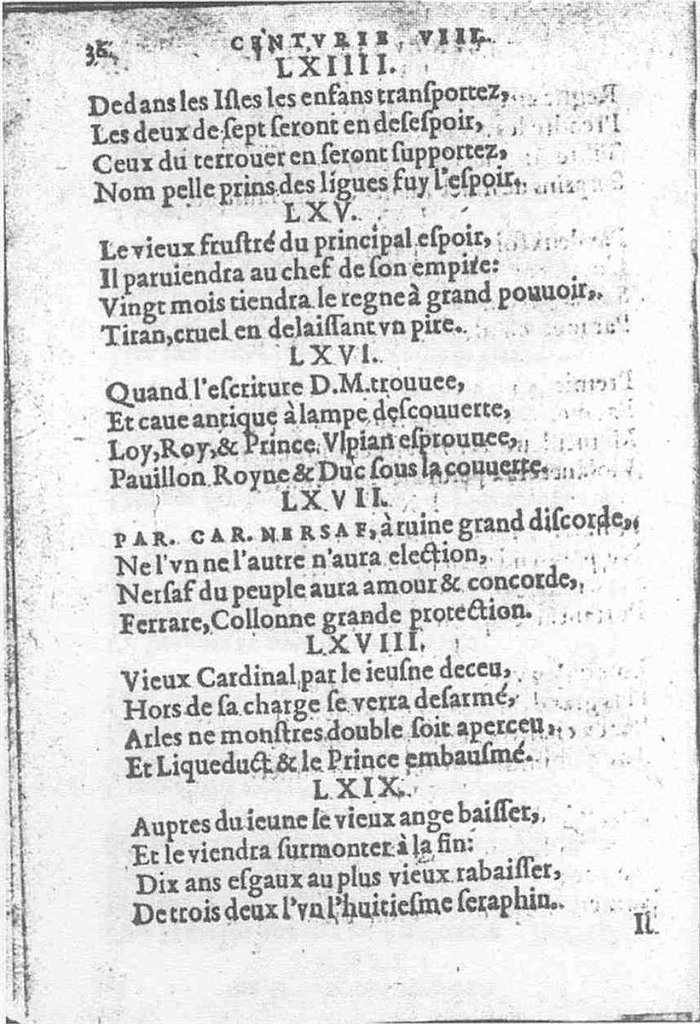 36. CENTVRIE VIII.
LXIIII.
Dedans les Iſles les enfans tranſportez,
Les deux de ſept ſeront en deſeſpoir,
Ceux du terrouer en ſeront ſupportez,
Nom pelle prins des ligues fuy l'eſpoir.
LXV.
Le vieux fruſtré du principal eſpoir,
Il paruiendra au chef de ſon empire:
Vingt mois tiendra le regne à grand pouuoir,
Tiran, cruel en delaiſſant vn pire.
LXVI.
Quand l'eſcriture D.M. trouuee,
Et caue antique à lampe deſcouuerte,
Loy, Roy, & Prince Vlpian eſprouuee,
Pauillon Royne & Duc ſous la couuerte.
LXVII.
PAR. CAR. NERSAF, à ruine grand diſcorde,
Ne l'vn ne l'autre n'aura election,
Nerſaf du peuple aura amour & concorde,
Ferrare, Collonne grande protection.
LXVIII.
Vieux Cardinal par le ieuſne deceu,
Hors de ſa charge ſe verra deſarmé,
Arles ne monſtres double ſoit aperceu,
Et Liqueduct & le Prince embauſmé.
LXIX.
Aupres du ieune ſe vieux ange baiſſer,
Et le viendra ſurmonter à la fin:
Dix ans eſgaux au plus vieux rabaiſſer,
De trois deux l'vn l'huitieſme ſeraphin.
Il